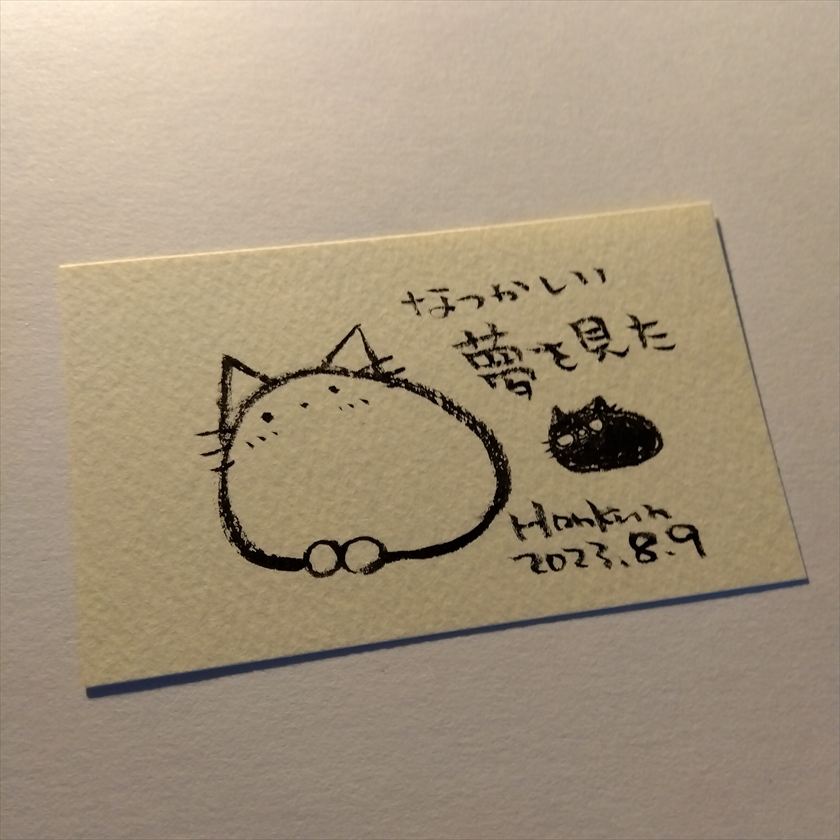 なつかしい
夢を見た
Honkun
2023.8.9